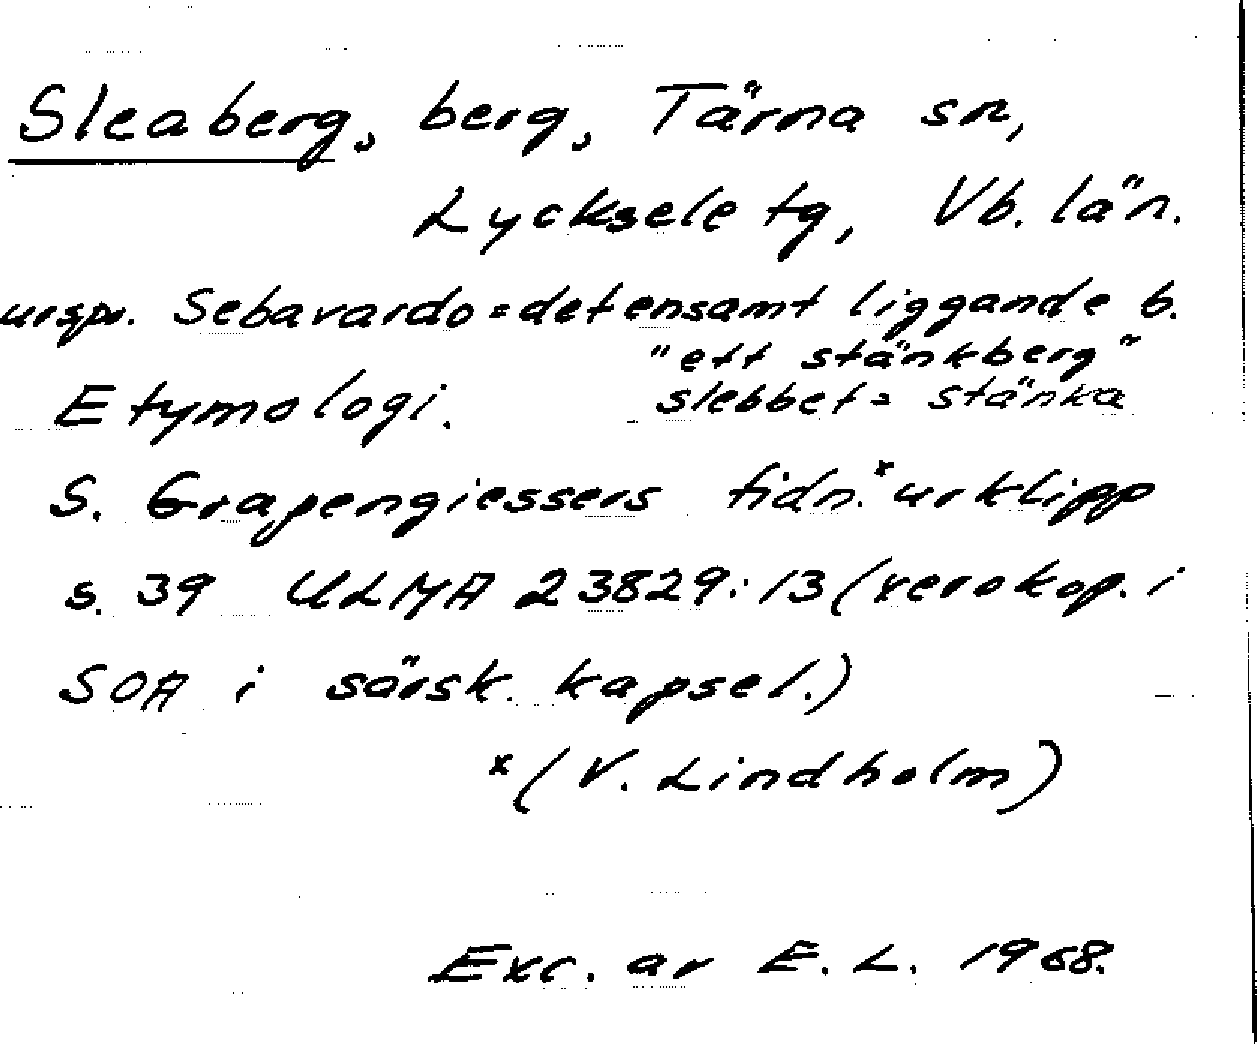 Sleaberg, berg, Tärna sn,
Lycksele tg, Vb. län.
urspr. Sebavardo = det ensamt liggande b.
"ett stänkberg"
Etymologi. slebbet = stänka
S. Grapengiessers tidn.x urklipp
s. 39 ULMA 23829:13 (xerokop. i
SOA i särsk. kapsel.)
x (V. Lindholm)
Exc. av E. L. 1968.